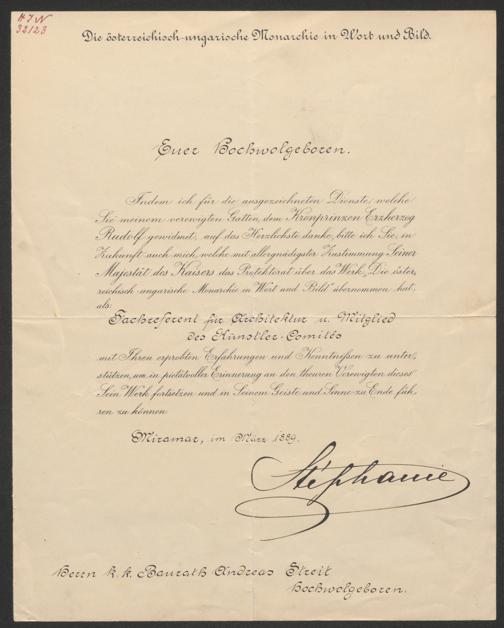 H.I.N.
32123
Die österreichisch-ungarische Monarchie in Wort und Bild.
Euer Hochwolgeboren.
Indem ich für die ausgezeichneten Dienste, welche
Sie meinem verewigten Gatten, dem Kronprinzen Erzherzog
Rudolf, gewidmet, auf das Herzlichste danke, bitte ich Sie, in
Zukunft auch mich, welche mit allergnädigster Zustimmung Seiner
Majestät des Kaisers das Protektorat über das Werk „Die öster-
reichisch-ungarische Monarchie in Wort und Bild" übernommen hat,
als:
Fachreferent für Architektur u. Mitglied
des Künstler-Comités
mit Ihren erprobten Erfahrungen und Kenntnißen zu unter-
stützen, um in pietätvoller Erinnerung an den theuren Verewigten dieses
Sein Werk fortsetzen und in Seinem Geiste und Sinne zu Ende füh-
ren zu können.
Miramar, im März 1889.
Stéphanie
Herrn k. k. Baurath Andreas Streit
Hochwolgeboren.